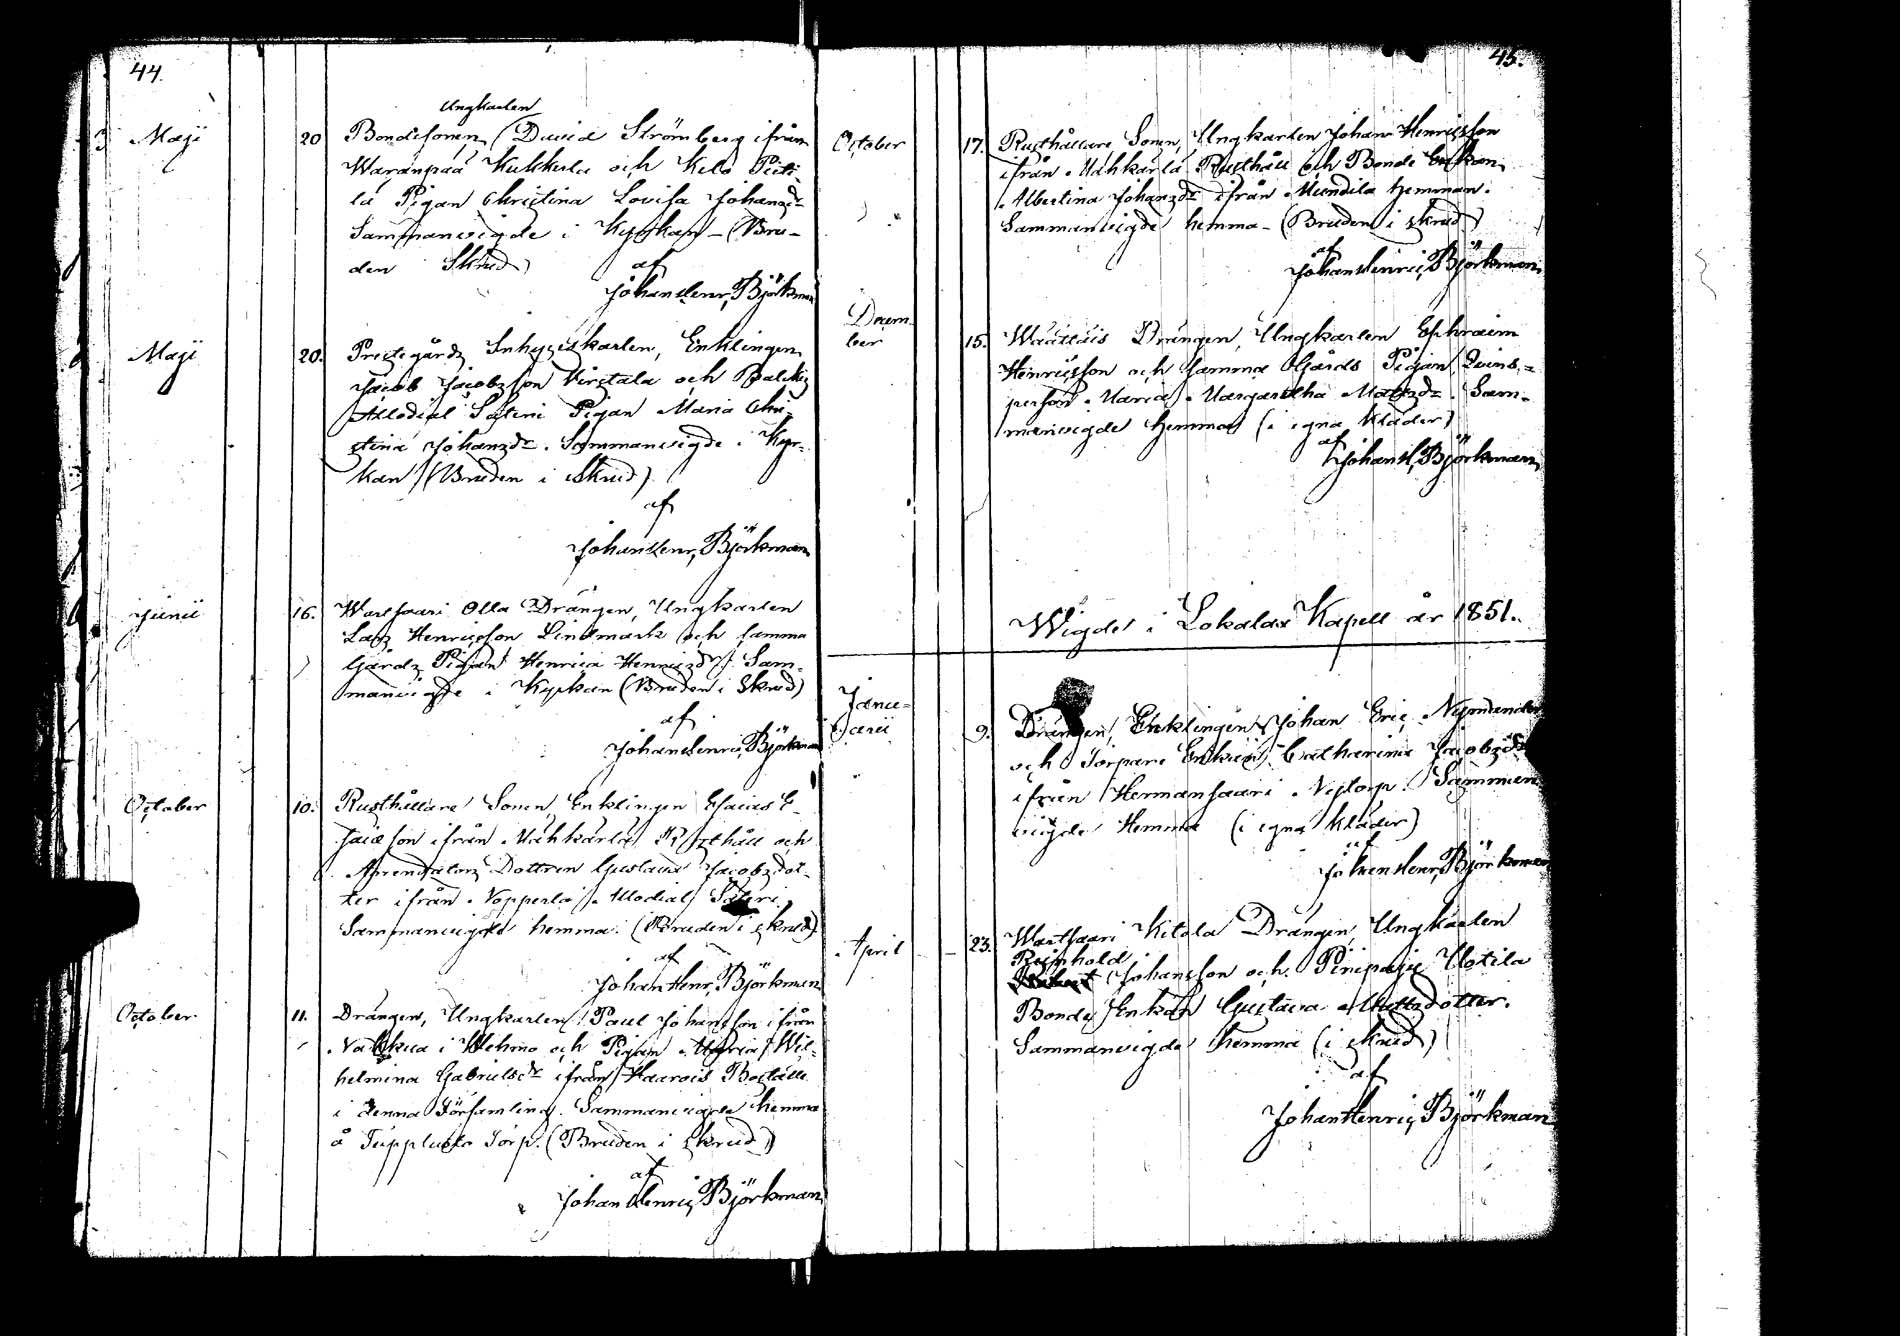 44.
Ungkarlen
Maji 20 Bondesonen David Strömberg ifrån
Waranpää Kukkerla och Kelo Piiti-
lä Pigan Christina Lovisa Johansdr
Sammanvigde i Kyrkan – (Bru-
den Skrud)
af
Johan Henr, Björkman
Maji 20. Prestegårds Inhyseskarlen, Enklingen
Jacob Jacobsson Virstala och
Allodial Säteri Pigan Maria Chri-
stina Johansdr. Sammanvigde i Kyr-
kan (Bruden i Skrud)
af
Johan Henr, Björkman
Junii 16. Wartsaari Olla Drängen, Ungkarlen
Lars Henricsson Lindmark och samma
Gårds Pigan Henrica Henricsdr. Sam-
manvigde i Kyrkan (Bruden i Skrud)
af
Johan Henric, Björkman
October 10. Rusthållare Sonen Enklingen Esaias E-
saiæson ifrån Mähkärlä Rusthåll och
Arrendators Dottren Gustava Jacobsdot-
ter ifrån Nopperla Allodial Säteri.
Sammanvigde hemma. (Bruden i skrud)
af
Johan Henr, Björkman
October 11. Drängen, Ungkarlen Paul Johansson ifrån
i Wehmo och Pigan Maria Wil-
helmina Gabrielsdr ifrån Haarois Boställe
i denna Församling. Sammanvigde hemma
å Torp. (Bruden i skrud)
af
Johan Henric, Björkman
45.
October 17. Rusthållare Sonen, Ungkarlen Johan Henricsson
ifrån Mähkärlä Rusthåll och Bonde Enkan
Albertina Johansdr ifrån Mundila hemman.
Sammanvigde hemma – (Bruden i skrud)
af
Johan Henric, Björkman
Decem-
ber 15. Drängen, Ungkarlen Ephraim
Henricsson och samma Gårds Pigan Qvins-
person Maria Margaretha Matsdr. Sam-
manvigde hemma (i egna kläder)
af
Johan H, Björkman
Wigde i Lokalax Kapell år 1851.
Janu-
arii 9. Drängen, Enklingen Johan Eric Nymander
och Torpare Enkan Catharina Jacobsdr
ifrån Hermansaari Nytorp. Samman
vigde Hemma (i egna kläder)
af
Johan Henr, Björkman
April 23. Wartsaari Kitola Drängen, Ungkarlen
Reinhold
Johansson och Pinipaju Uotila
Bonde Enkan Gustava Mattsdotter.
Sammanvigde hemma (i skrud)
af
Johan Henric, Björkman